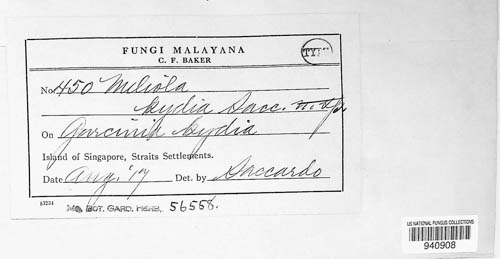 FUNGI MALAYANA
TYPE
C. F. BAKER
No. 450 Meliola
bydia Sacc. n. sp.
On Garcinia bydia
Island of Singapore, Straits Settlements.
Date Aug. '17 Det. by Saccardo
63234
MO. BOT. GARD. HERB. 56558.
US NATIONAL FUNGUS COLLECTIONS
940908